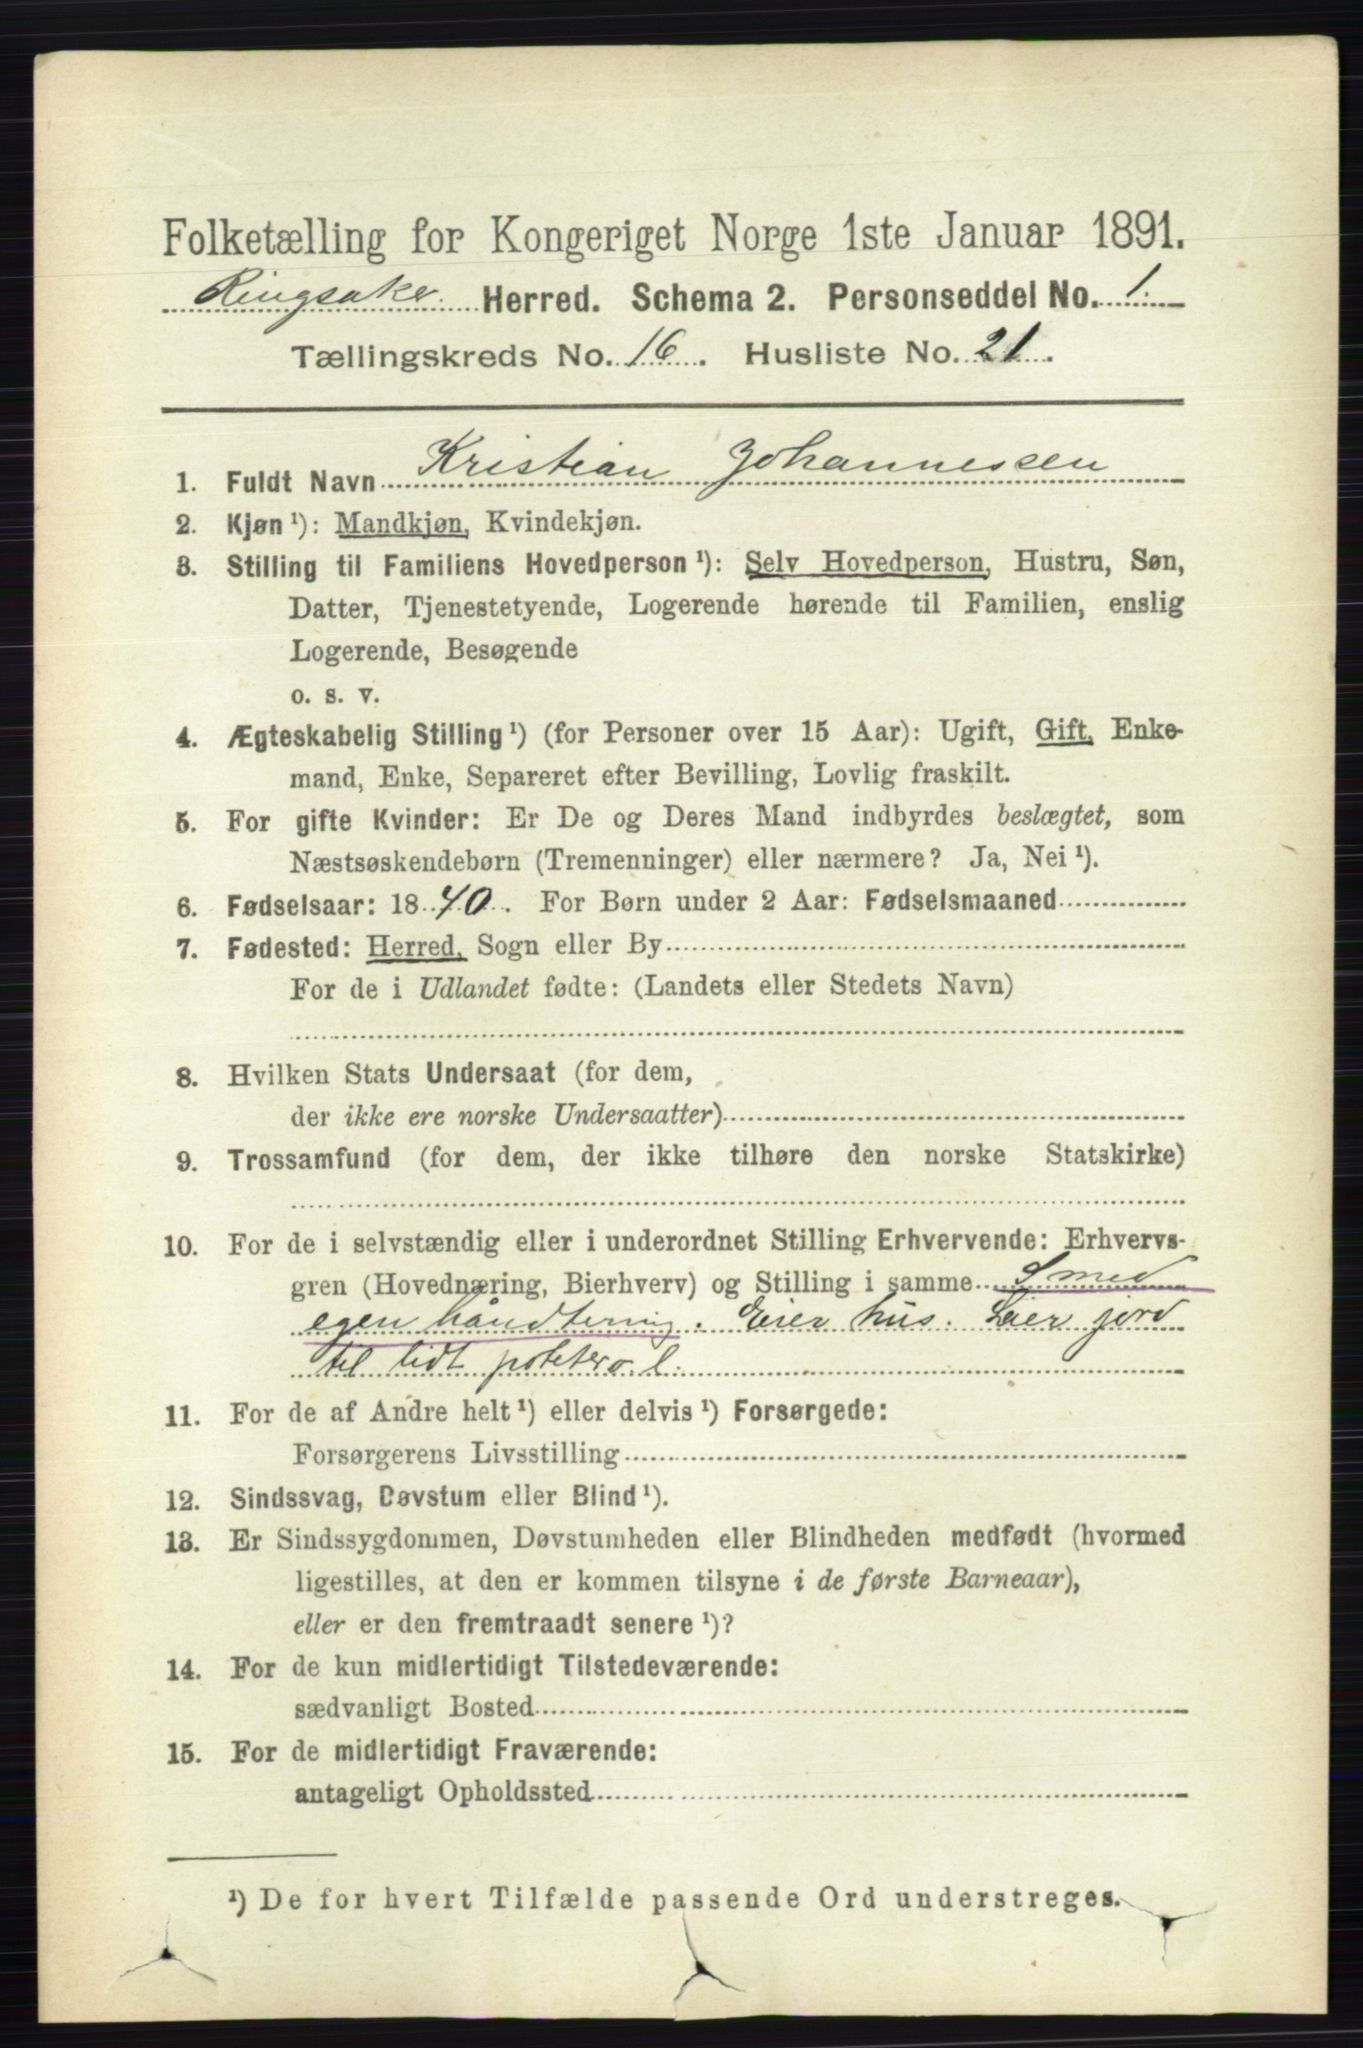 Folketælling for Kongeriget Norge 1ste Januar 1891.
Ringsaker Herred. Schema 2. Personseddel No. 1
Tællingskreds No. 16. Husliste No. 21.
1. Fuldt Navn Kristian Johannessen
2. Kjøn ¹): Mandkjøn, Kvindekjøn.
3. Stilling til Familiens Hovedperson ¹): Selv Hovedperson, Hustru, Søn,
Datter, Tjenestetyende, Logerende hørende til Familien, enslig
Logerende, Besøgende
o. s. v.
4. Ægteskabelig Stilling ¹) (for Personer over 15 Aar): Ugift, Gift, Enke-
mand, Enke, Separeret efter Bevilling, Lovlig fraskilt.
5. For gifte Kvinder: Er De og Deres Mand indbyrdes beslægtet, som
Næstsøskendebørn (Tremenninger) eller nærmere? Ja, Nei ¹).
6. Fødselsaar: 1840. For Børn under 2 Aar: Fødselsmaaned
7. Fødested: Herred, Sogn eller By
For de i Udlandet fødte: (Landets eller Stedets Navn)
8. Hvilken Stats Undersaat (for dem,
der ikke ere norske Undersaatter)
9. Trossamfund (for dem, der ikke tilhøre den norske Statskirke)
10. For de i selvstændig eller i underordnet Stilling Erhvervende: Erhvervs-
gren (Hovednæring, Bierhverv) og Stilling i samme Smed
egen håndtering. Eier hus. Leier jord
til lidt poteter o. l.
11. For de af Andre helt ¹) eller delvis ¹) Forsørgede:
Forsørgerens Livsstilling
12. Sindssvag, Døvstum eller Blind ¹).
13. Er Sindssygdommen, Døvstumheden eller Blindheden medfødt (hvormed
ligestilles, at den er kommen tilsyne i de første Barneaar),
eller er den fremtraadt senere ¹)?
14. For de kun midlertidigt Tilstedeværende:
sædvanligt Bosted
15. For de midlertidigt Fraværende:
antageligt Opholdssted
¹) De for hvert Tilfælde passende Ord understreges.